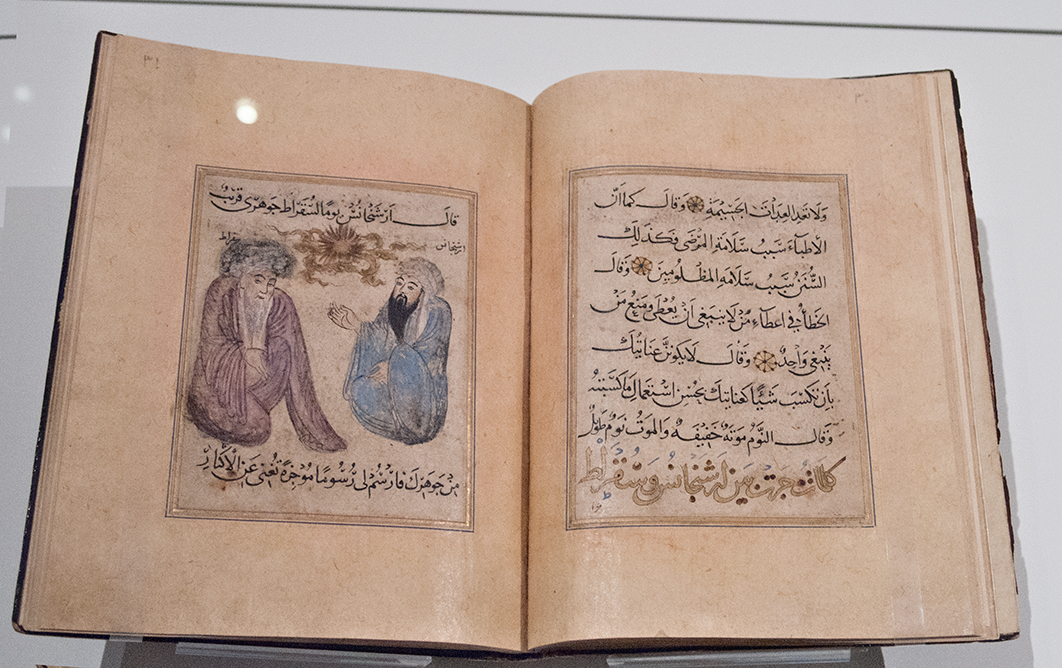 ٣٠
ولا تعد العدات الجسيمة وقال كما أن
الأطباء سبب سلامة المرضى فكذلك
السنن سبب سلامة المظلومين وقال
الخطأ في اعطاء من لا ينبغي أن يعطى ومنع من
ينبغي واحد وقال لا يكونن عنايتك
بأن تكسب شيئا كعنايتك بحسن استعمال ما كسبته
وقال النوم موتة خفيفة والموت نوم طويل
كلمات جرت بين ارشخانس وسقراط
٣١
قال ارشخانس يوما لسقراط جوهري قريب
ارشخانس
سقراط
من جوهرك فارسم لي رسوما موجزة تغني عن الاكثار